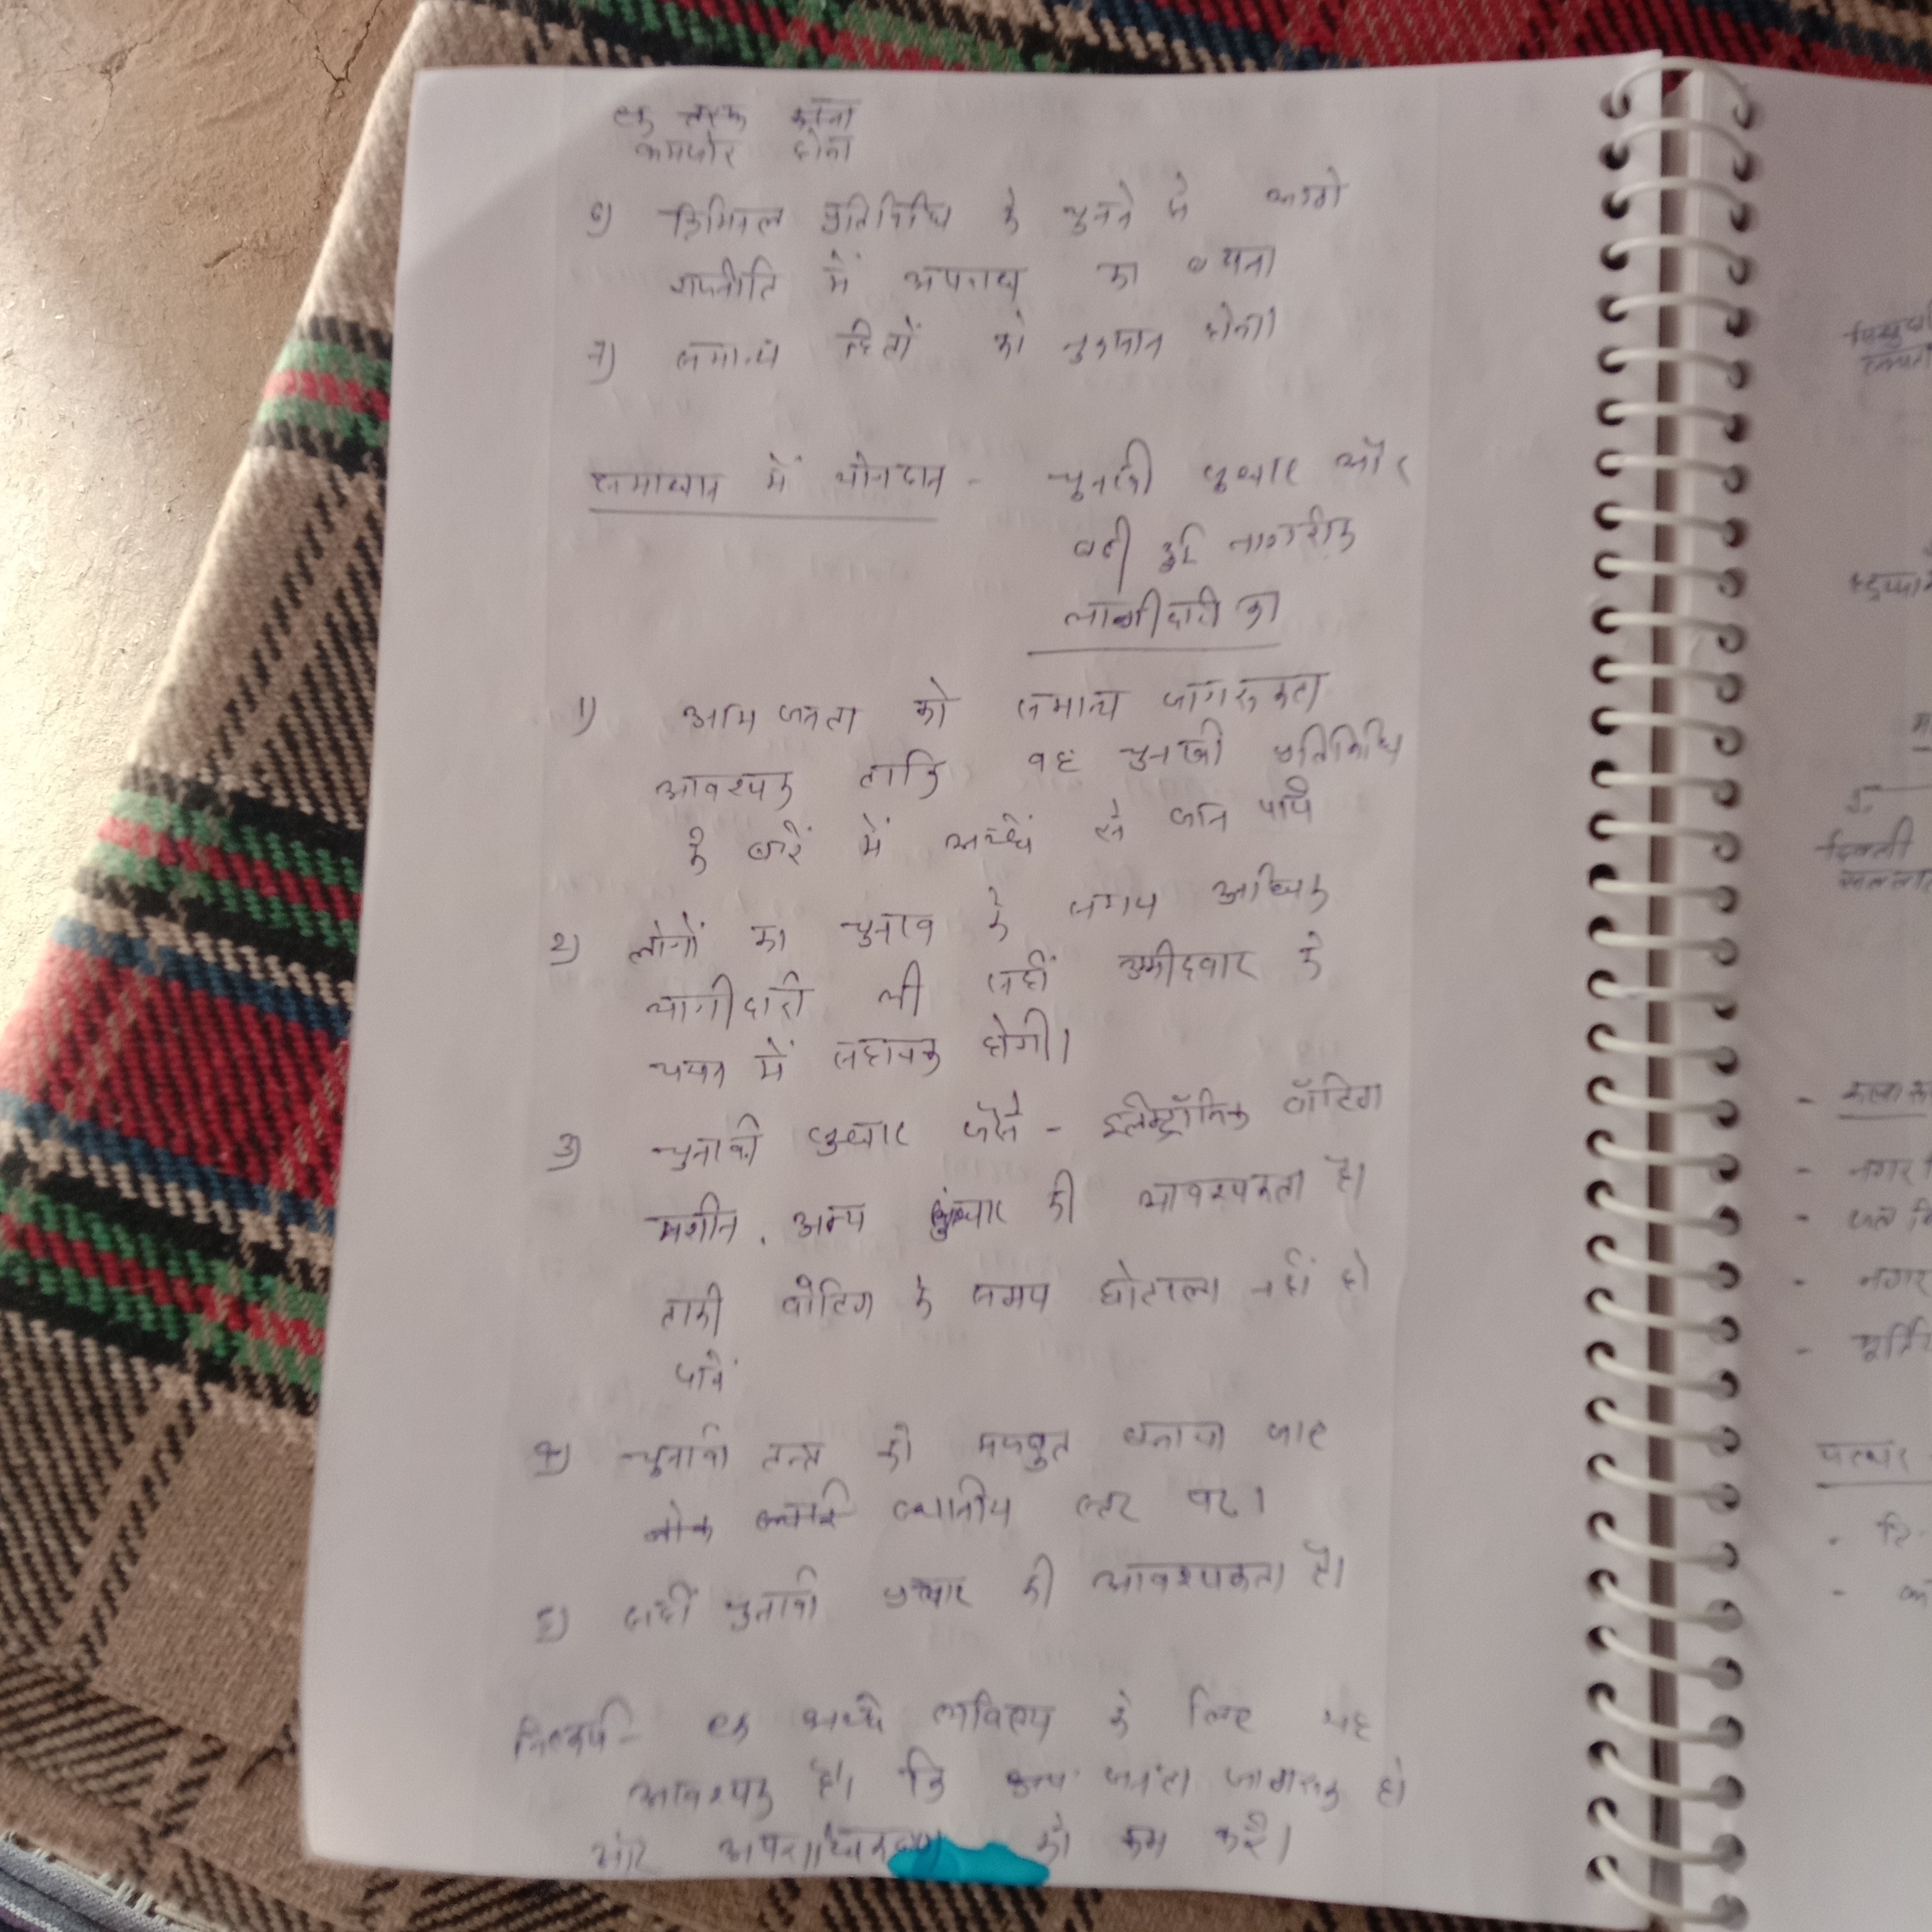 एक तरफ करना
कमजोर होना
6) क्रिमिनल प्रतिनिधि के चुनने से आगे
राजनीति में अपराध का
7) समान्य हितों को नुकसान होना।
समाधान में योगदान - चुनावी सुधार और
बढी हुई नागरीक
भागीदारी का
1) आम जनता को समान्य जागरूकता
आवश्यक ताकि वह चुनावी प्रतिनिधि
के बारें में अच्छें से जान पायें
2) लोगों का चुनाव के समय अधिक
भागीदारी भी सहीं उम्मीदवार के
चयन में सहायक होगी।
3) चुनावी सुधार जैसे - इलेक्ट्रॉनिक वॉटिंग
मशीन, अन्य सुधार की आवश्यकता है।
ताकी वोटिंग के समय घोटाला नहीं हो
पायें
4) चुनावी तन्त्र को मजबुत बनाया जाए
स्थानीय स्तर पर।
5) सहीं चुनावी सुधार की आवश्यकता है।
निष्कर्ष - एक अच्छे भविष्य के लिए यह
आवश्यक है। कि जनता जागरूक हो
और अपराधिकरण को कम करें।
नगर
नगर
पत्थर